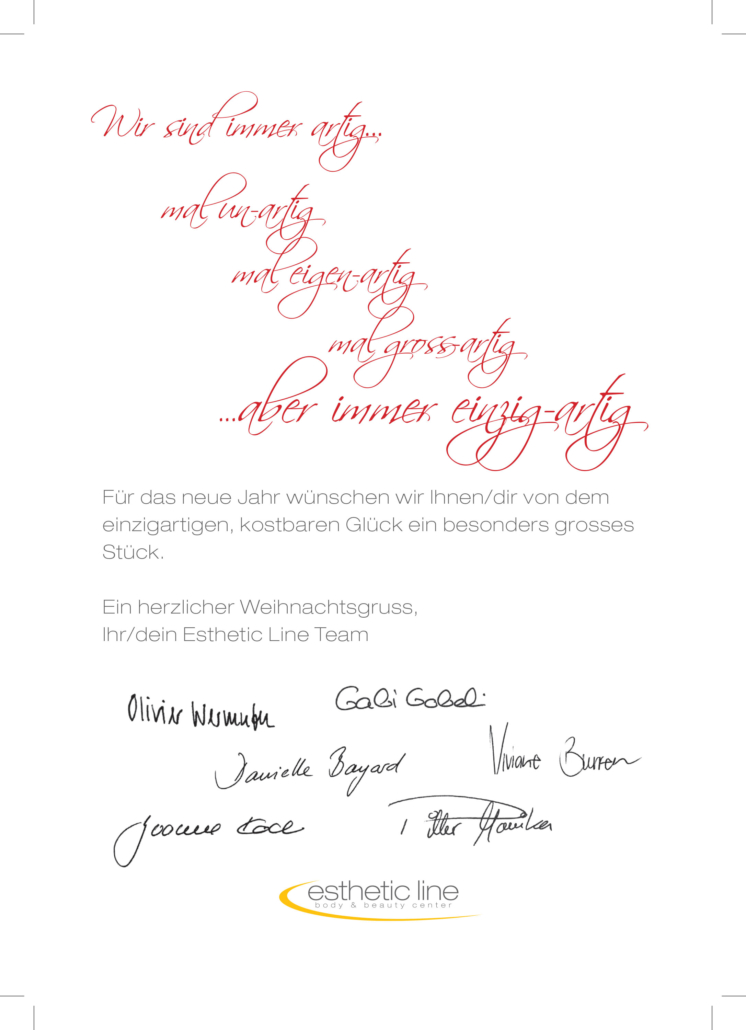 Wir sind immer artig...
mal un-artig
mal eigen-artig
mal gross-artig
...aber immer einzig-artig
Für das neue Jahr wünschen wir Ihnen/dir von dem
einzigartigen, kostbaren Glück ein besonders grosses
Stück.
Ein herzlicher Weihnachtsgruss,
Ihr/dein Esthetic Line Team
Olivier
Gabi
Danielle Bayard
Viviane
esthetic line
body & beauty center